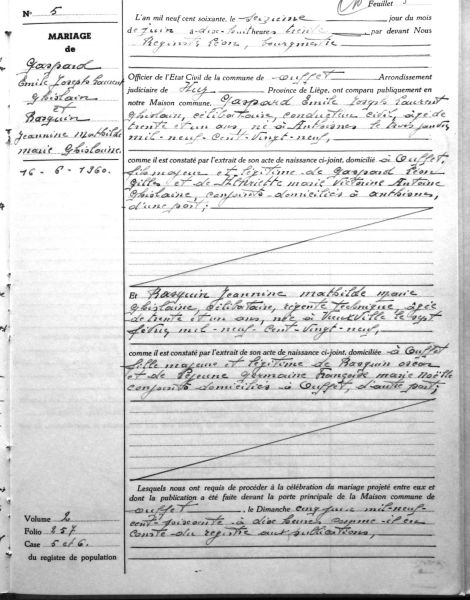 Feuillet 5
N° 5
MARIAGE
de
Gaspard
Emile Joseph Laurent
Ghislain
et
Rasquin
Jeannine Mathilde
Marie Ghislaine.
16-6-1960.
L'an mil neuf cent soixante, le seizième jour du mois
de juin à dix-huit heures trente par devant Nous
Regnier Léon, bourgmestre
Officier de l'Etat Civil de la commune de Ouffet Arrondissement
judiciaire de Huy Province de Liège, ont comparu publiquement en
notre Maison commune, Gaspard Emile Joseph Laurent
Ghislain, célibataire, conducteur civil, âgé de
trente et un ans, né à Anthisnes le trois janvier
mil-neuf-cent-vingt-neuf,
comme il est constaté par l'extrait de son acte de naissance ci-joint, domicilié à Ouffet,
fils majeur et légitime de Gaspard Léon
Gilles et de marie Victorine Antoine
Ghislaine, conjoints domiciliés à anthisnes,
d'une part;
Et Rasquin Jeannine mathilde marie
Ghislaine, célibataire, régente technique âgée
de trente et un ans, née à Vieuxville le sept
février mil-neuf-cent-vingt-neuf,
comme il est constaté par l'extrait de son acte de naissance ci-joint, domiciliée à Ouffet
fille majeure et légitime de Rasquin oscar
et de Lejeune Germaine Françoise marie Noëlle
conjoints domiciliés à Ouffet, d'autre part;
Lesquels nous ont requis de procéder à la célébration du mariage projeté entre eux et
dont la publication a été faite devant la porte principale de la Maison commune de
ouffet, le Dimanche cinq juin mil-neuf-
cent-soixante à dix heures comme il en
conste du registre aux publications,
Volume 2
Folio 257
Case 5 et 6.
du registre de population